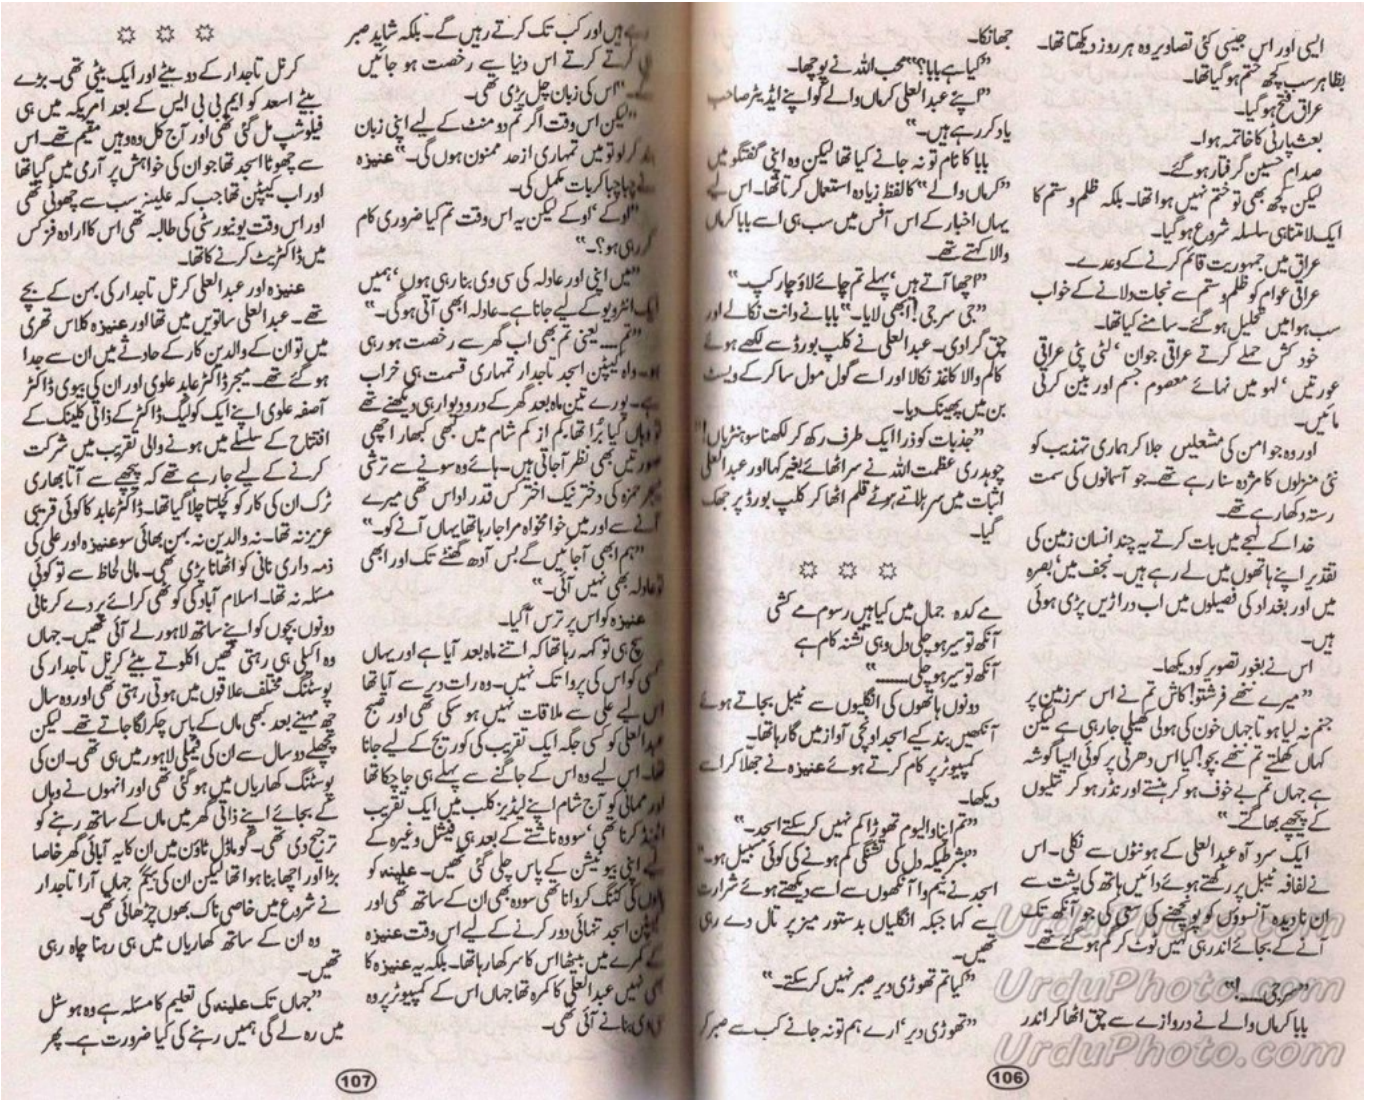 ایسی اور اس جیسی کئی تصاویر وہ ہر روز دیکھتا تھا۔
بظاہر سب کچھ ختم ہو گیا تھا۔
عراق فتح ہو گیا۔
بعث پارٹی کا خاتمہ ہوا۔
صدام حسین گرفتار ہو گئے۔
لیکن کچھ بھی تو ختم نہیں ہوا تھا۔ بلکہ ظلم و ستم کا
ایک لامتناہی سلسلہ شروع ہو گیا۔
عراق میں جمہوریت قائم کرنے کے وعدے۔
عراقی عوام کو ظلم و ستم سے نجات دلانے کے خواب
سب ہوا میں تحلیل ہو گئے۔ سامنے کیا تھا۔
خود کش حملے کرتے عراقی جوان، لٹی پٹی عراقی
عورتیں، لہو میں نہائے معصوم جسم اور بین کرتی
مائیں۔
اور وہ جو امن کی مشعلیں جلا کر ہماری تہذیب کو
نئی منزلوں کا مژدہ سنا رہے تھے۔ جو آسمانوں کی سمت
رستہ دکھا رہے تھے۔
خدا کے لہجے میں بات کرتے یہ چند انسان زمین کی
تقدیر اپنے ہاتھوں میں لے رہے ہیں۔ نجف میں، بصرہ
میں اور بغداد کی فصیلوں میں اب دراڑیں پڑی ہوئی
ہیں۔
اس نے بغور تصویر کو دیکھا۔
”میرے ننھے فرشتو! کاش تم نے اس سرزمین پر
جنم نہ لیا ہوتا جہاں خون کی ہولی کھیلی جا رہی ہے لیکن
کہاں کھلتے تم ننھے بچو! کیا اس دھرتی پر کوئی ایسا گوشہ
ہے جہاں تم بے خوف ہو کر ہنستے اور نڈر ہو کر تتلیوں
کے پیچھے بھاگتے۔“
ایک سرد آہ عبدالعلی کے ہونٹوں سے نکلی۔ اس
نے لفافہ ٹیبل پر رکھتے ہوئے دائیں ہاتھ کی پشت سے
ان نادیدہ آنسوؤں کو پونچھنے کی سعی کی جو آنکھ تک
آنے کے بجائے اندر ہی کہیں ٹوٹ کر گم ہو گئے تھے۔
”سر جی.....!“
بابا کرماں والے نے دروازے سے چق اٹھا کر اندر
جھانکا۔
”کیا ہے بابا؟“ محب اللہ نے پوچھا۔
”اپنے عبدالعلی کرماں والے کو اپنے ایڈیٹر صاحب
یاد کر رہے ہیں۔“
بابا کا نام تو نہ جانے کیا تھا لیکن وہ اپنی گفتگو میں
”کرماں والے“ کا لفظ زیادہ استعمال کرتا تھا۔ اس لیے
یہاں اخبار کے اس آفس میں سب ہی اسے بابا کرماں
والا کہتے تھے۔
”اچھا آتے ہیں، پہلے تم چائے لاؤ چار کپ۔“
”جی سر جی! ابھی لایا۔“ بابا نے دانت نکالے اور
چق گرا دی۔ عبدالعلی نے کلپ بورڈ سے لکھے ہوئے
کالم والا کاغذ نکالا اور اسے گول مول سا کر کے ویسٹ
بن میں پھینک دیا۔
”جذبات کو ذرا ایک طرف رکھ کر لکھنا سوہنٹریاں!“
چوہدری عظمت اللہ نے سر اٹھائے بغیر کہا اور عبدالعلی
اثبات میں سر ہلاتے ہوئے قلم اٹھا کر کلپ بورڈ پر جھک
گیا۔
مے کدہ جمال میں کیا ہیں رسوم مے کشی
آنکھ تو سیر ہو چلی دل وہی تشنہ کام ہے
آنکھ تو سیر ہو چلی.....“
دونوں ہاتھوں کی انگلیوں سے ٹیبل بجاتے ہوئے
آنکھیں بند کیے اسجد اونچی آواز میں گا رہا تھا۔
کمپیوٹر پر کام کرتے ہوئے عنیزہ نے جھلا کر اسے
دیکھا۔
”تم اپنا والیوم تھوڑا کم نہیں کر سکتے اسجد۔“
”بشرطیکہ دل کی تشنگی کم ہونے کی کوئی سبیل ہو۔“
اسجد نے نیم وا آنکھوں سے اسے دیکھتے ہوئے شرارت
سے کہا جبکہ انگلیاں بدستور میز پر تال دے رہی
تھیں۔
”کیا تم تھوڑی دیر صبر نہیں کر سکتے۔“
”تھوڑی دیر، ارے ہم تو نہ جانے کب سے صبر کر
106
رہے ہیں اور کب تک کرتے رہیں گے۔ بلکہ شاید صبر
کرتے کرتے اس دنیا سے رخصت ہو جائیں
گے۔“ اس کی زبان چل پڑی تھی۔
”لیکن اس وقت اگر تم دو منٹ کے لیے اپنی زبان
بند کر لو تو میں تمہاری از حد ممنون ہوں گی۔“ عنیزہ
نے چبا چبا کر بات مکمل کی۔
”اوکے، اوکے لیکن یہ اس وقت تم کیا ضروری کام
کر رہی ہو؟۔“
”میں اپنی اور عادلہ کی سی وی بنا رہی ہوں، ہمیں
ایک انٹرویو کے لیے جانا ہے۔ عادلہ ابھی آتی ہو گی۔“
”تم.... یعنی تم بھی اب گھر سے رخصت ہو رہی
ہو۔ واہ کیپٹن اسجد تاجدار تمہاری قسمت ہی خراب
ہے۔ پورے تین ماہ بعد گھر کے در و دیوار ہی دیکھنے تھے
تو وہاں کیا برا تھا، کم از کم شام میں کبھی کبھار اچھی
صورتیں بھی نظر آ جاتی ہیں۔ ہائے وہ سونے سے ترشی
میجر حمزہ کی دختر نیک اختر کس قدر اداس تھی میرے
آنے سے اور میں خوامخواہ مرا جا رہا تھا یہاں آنے کو۔“
”ہم ابھی آ جائیں گے بس آدھ گھنٹے تک اور ابھی
تو عادلہ بھی نہیں آئی۔“
عنیزہ کو اس پر ترس آ گیا۔
سچ ہی تو کہہ رہا تھا کہ اتنے ماہ بعد آیا ہے اور یہاں
کسی کو اس کی پروا تک نہیں۔ وہ رات دیر سے آیا تھا
اس لیے علی سے ملاقات نہیں ہو سکی تھی اور صبح
عبدالعلی کو کسی جگہ ایک تقریب کی کوریج کے لیے جانا
تھا۔ اس لیے وہ اس کے جاگنے سے پہلے ہی جا چکا تھا
اور ممانی کو آج شام اپنے لیڈیز کلب میں ایک تقریب
اٹینڈ کرنا تھی، سو وہ ناشتے کے بعد ہی فیشل وغیرہ کے
لیے اپنی بیوٹیشن کے پاس چلی گئی تھیں۔ علینہ کو
بالوں کی کٹنگ کروانا تھی سو وہ بھی ان کے ساتھ تھی اور
کیپٹن اسجد تنہائی دور کرنے کے لیے اس وقت عنیزہ
کے کمرے میں بیٹھا اس کا سر کھا رہا تھا۔ بلکہ یہ عنیزہ کا
بھی نہیں عبدالعلی کا کمرہ تھا جہاں اس کے کمپیوٹر پر وہ
سی وی بنانے آئی تھی۔
کرنل تاجدار کے دو بیٹے اور ایک بیٹی تھی۔ بڑے
بیٹے اسعد کو ایم بی بی ایس کے بعد امریکہ میں ہی
فیلوشپ مل گئی تھی اور آج کل وہ وہیں مقیم تھے۔ اس
سے چھوٹا اسجد تھا جو ان کی خواہش پر آرمی میں گیا تھا
اور اب کیپٹن تھا جب کہ علینہ سب سے چھوٹی تھی
اور اس وقت یونیورسٹی کی طالبہ تھی اس کا ارادہ فزکس
میں ڈاکٹریٹ کرنے کا تھا۔
عنیزہ اور عبدالعلی کرنل تاجدار کی بہن کے بچے
تھے۔ عبدالعلی ساتویں میں تھا اور عنیزہ کلاس تھری
میں تو ان کے والدین کار کے حادثے میں ان سے جدا
ہو گئے تھے۔ میجر ڈاکٹر عابد علوی اور ان کی بیوی ڈاکٹر
آصفہ علوی اپنے ایک کولیگ ڈاکٹر کے ذاتی کلینک کے
افتتاح کے سلسلے میں ہونے والی تقریب میں شرکت
کرنے کے لیے جا رہے تھے کہ پیچھے سے آتا بھاری
ٹرک ان کی کار کو کچلتا چلا گیا تھا۔ ڈاکٹر عابد کا کوئی قریبی
عزیز نہ تھا۔ نہ والدین نہ بہن بھائی سو عنیزہ اور علی کی
ذمہ داری نانی کو اٹھانا پڑی تھی۔ مالی لحاظ سے تو کوئی
مسئلہ نہ تھا۔ اسلام آباد کی کوٹھی کرائے پر دے کر نانی
دونوں بچوں کو اپنے ساتھ لاہور لے آئی تھیں۔ جہاں
وہ اکیلی ہی رہتی تھیں اکلوتے بیٹے کرنل تاجدار کی
پوسٹنگ مختلف علاقوں میں ہوتی رہتی تھی اور وہ سال
چھ مہینے بعد کبھی ماں کے پاس چکر لگا جاتے تھے۔ لیکن
پچھلے دو سال سے ان کی فیملی لاہور میں ہی تھی۔ ان کی
پوسٹنگ کھاریاں میں ہو گئی تھی اور انہوں نے وہاں
کے بجائے اپنے ذاتی گھر میں ماں کے ساتھ رہنے کو
ترجیح دی تھی۔ گو ماڈل ٹاؤن میں ان کا یہ آبائی گھر خاصا
بڑا اور اچھا بنا ہوا تھا لیکن ان کی بیگم جہاں آرا تاجدار
نے شروع میں خاصی ناک بھوں چڑھائی تھی۔
وہ ان کے ساتھ کھاریاں میں ہی رہنا چاہ رہی
تھیں۔
”جہاں تک علینہ کی تعلیم کا مسئلہ ہے وہ ہوسٹل
میں رہ لے گی ہمیں رہنے کی کیا ضرورت ہے۔ پھر
107
UrduPhoto.com
UrduPhoto.com
UrduPhoto.com